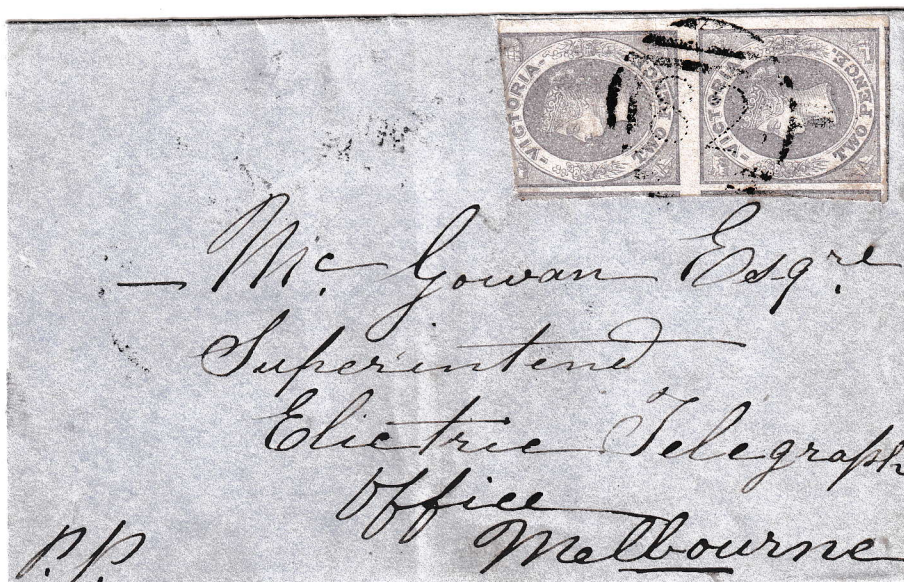 VICTORIA TWO PENCE
VICTORIA TWO PENCE
— Mc. Gowan Esqre.
Superintend
Elictric Telegraph
Office
Melbourne
P.P.